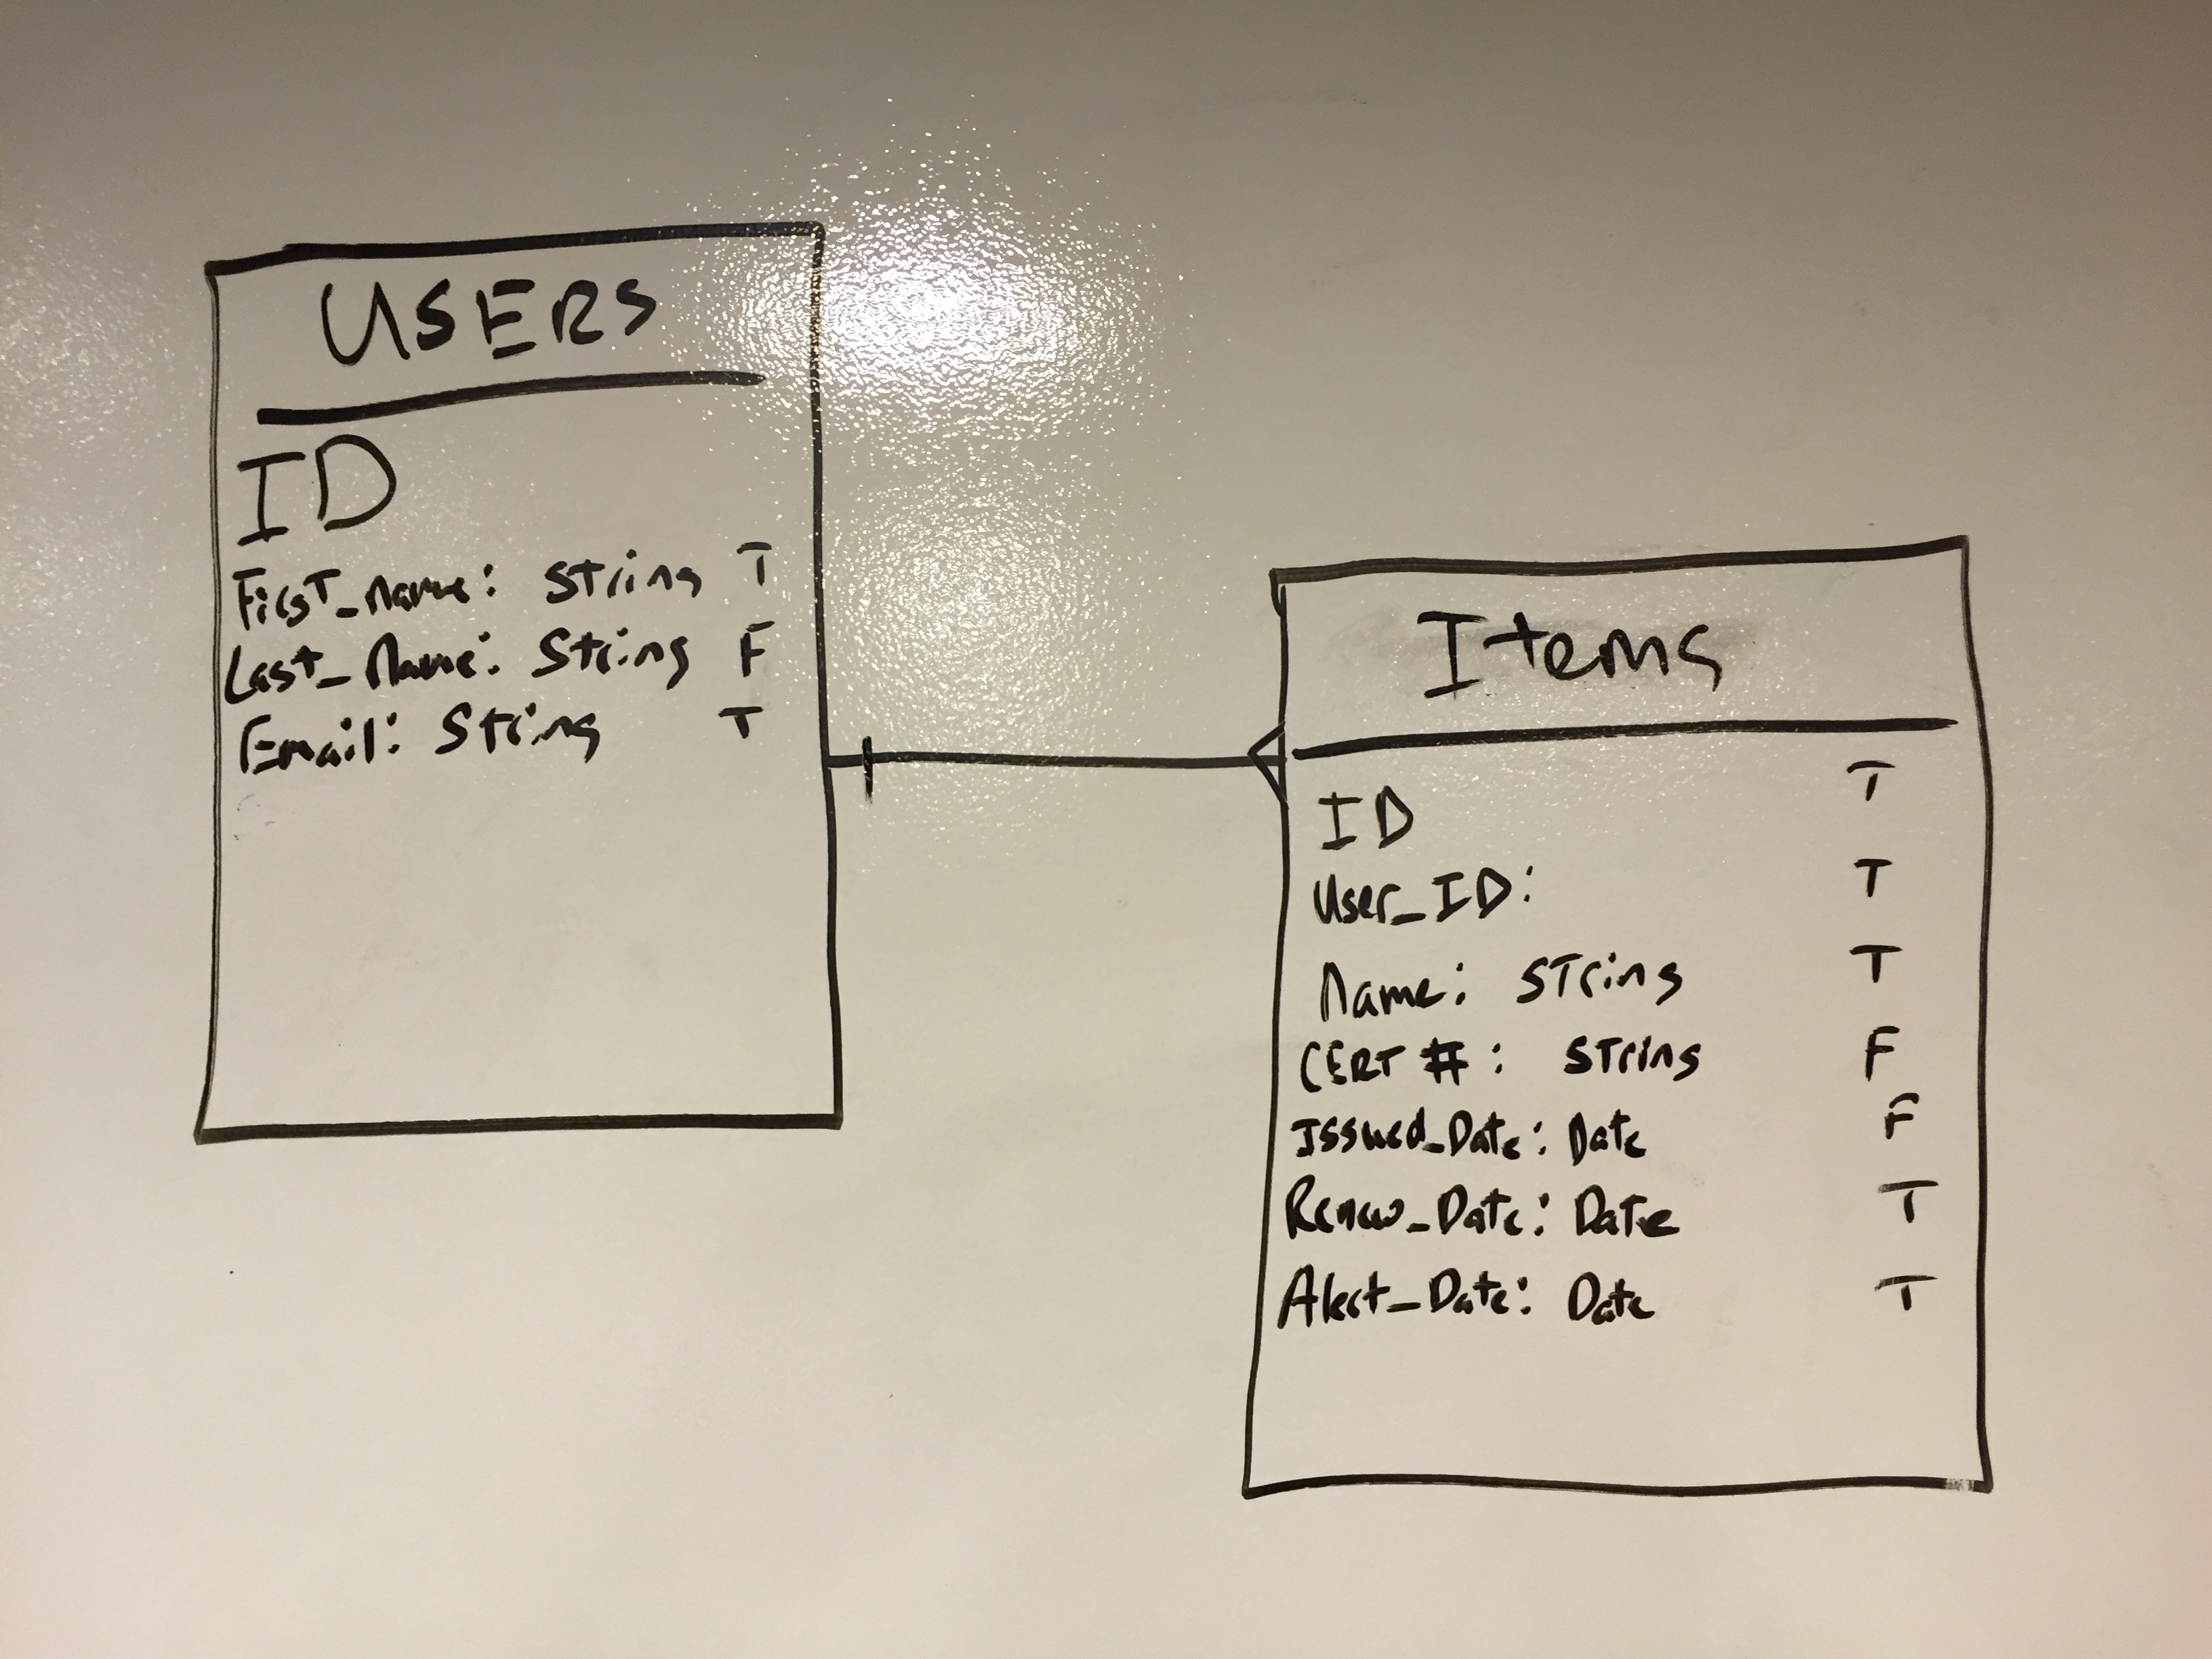 USERS
ID
First_name: String T
Last_Name: String F
Email: String T
Items
ID T
User_ID: T
Name: STring T
CERT #: STring F
Issued_Date: Date F
Renew_Date: Date T
Alert_Date: Date T